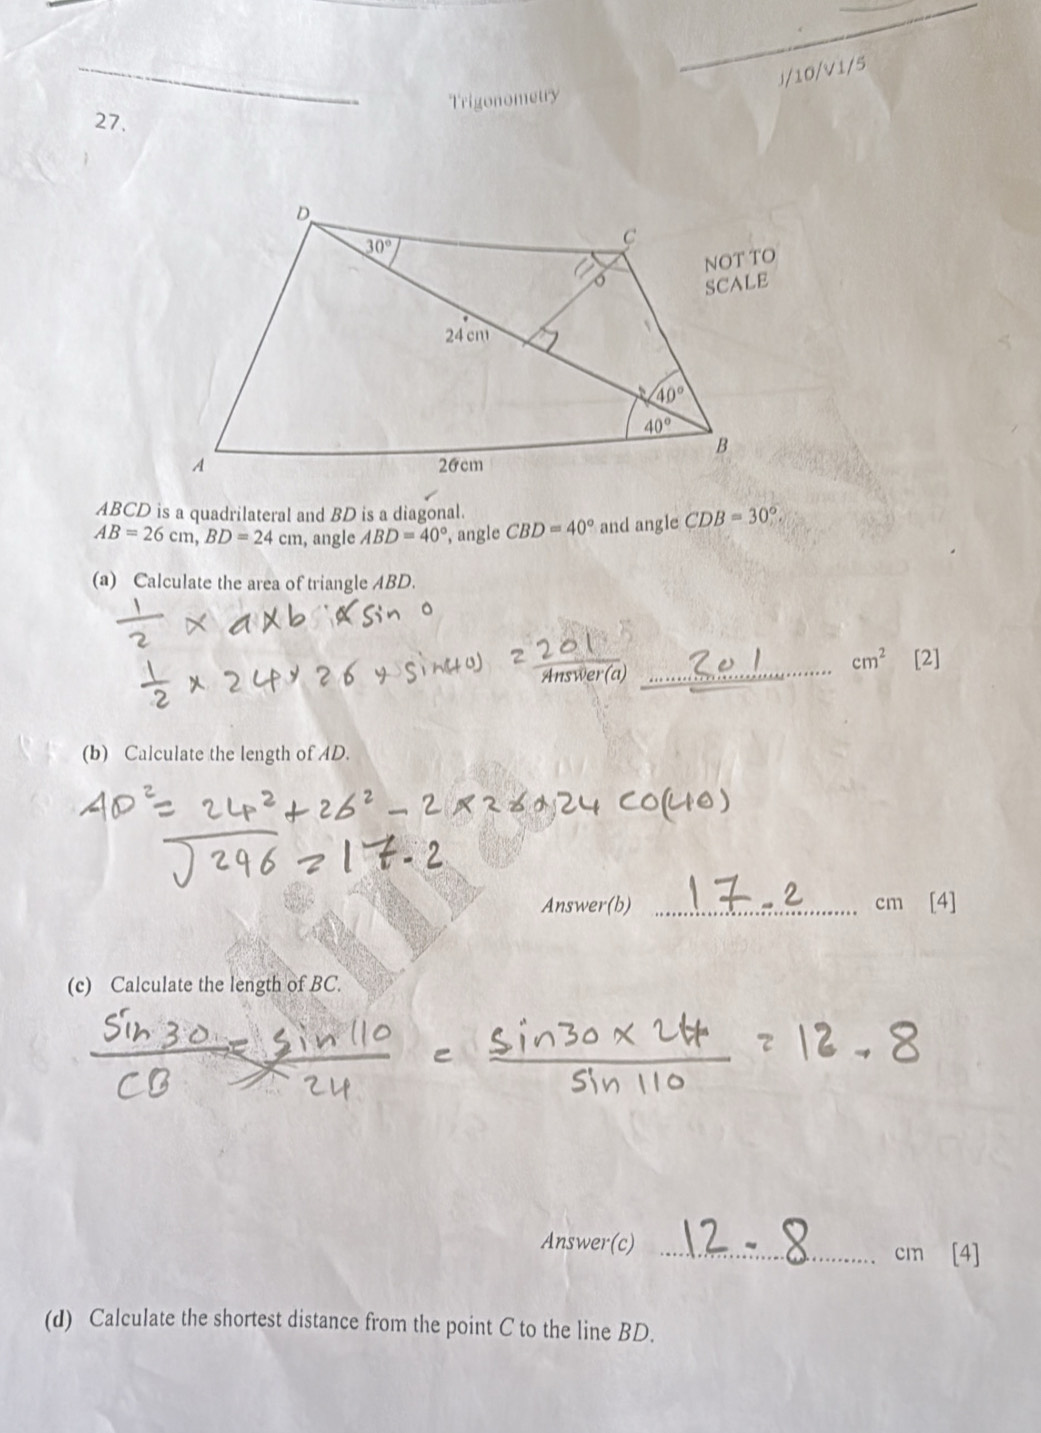 J/10/V1/5
Trigonometry
27.
D
30°
C
NOT TO
SCALE
24 cm
40°
40°
A
B
26 cm
ABCD is a quadrilateral and BD is a diagonal.
AB = 26 cm, BD = 24 cm, angle ABD = 40°, angle CBD = 40° and angle CDB = 30°.
(a) Calculate the area of triangle ABD.
1/2 × a×b × sin θ
1/2 × 24 × 26 × sin(40) = 201
Answer(a) 201 cm² [2]
(b) Calculate the length of AD.
AD² = 24² + 26² - 2 × 26 × 24 CO(40)
√296 = 17.2
Answer(b) 17.2 cm [4]
(c) Calculate the length of BC.
sin 30/CB = sin 110/24 = sin30 × 24/sin 110 = 12.8
Answer(c) 12.8 cm [4]
(d) Calculate the shortest distance from the point C to the line BD.